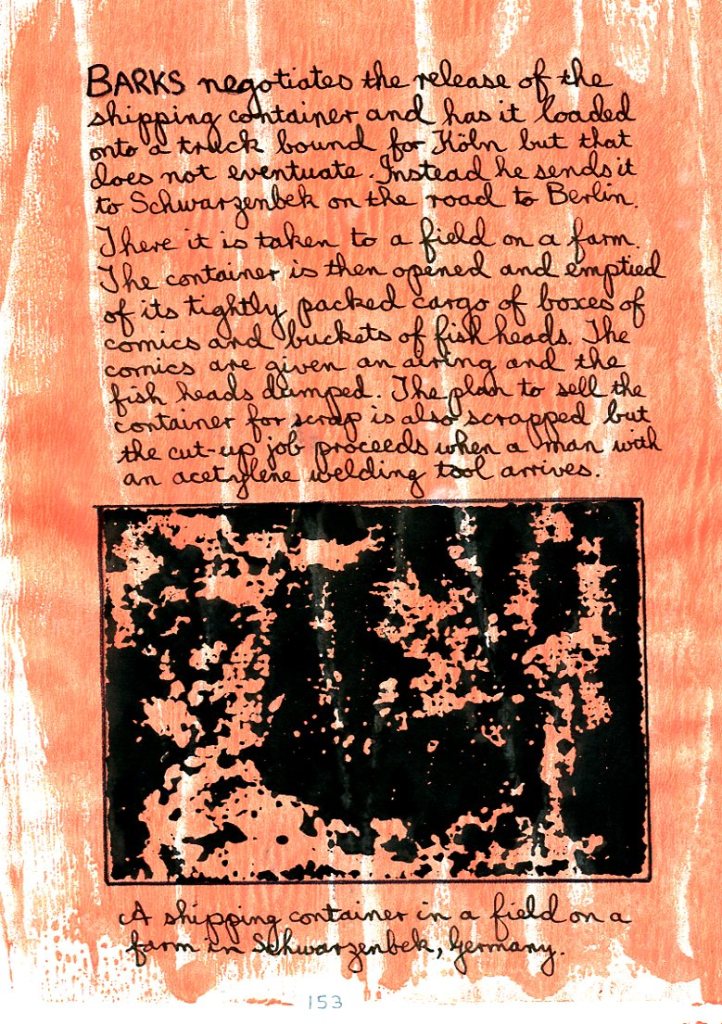 BARKS negotiates the release of the
shipping container and has it loaded
onto a truck bound for Köln but that
does not eventuate. Instead he sends it
to Schwarzenbek on the road to Berlin.
There it is taken to a field on a farm.
The container is then opened and emptied
of its tightly packed cargo of boxes of
comics and buckets of fish heads. The
comics are given an airing and the
fish heads dumped. The plan to sell the
container for scrap is also scrapped but
the cut-up job proceeds when a man with
an acetylene welding tool arrives.
A shipping container in a field on a
farm in Schwarzenbek, Germany.
153